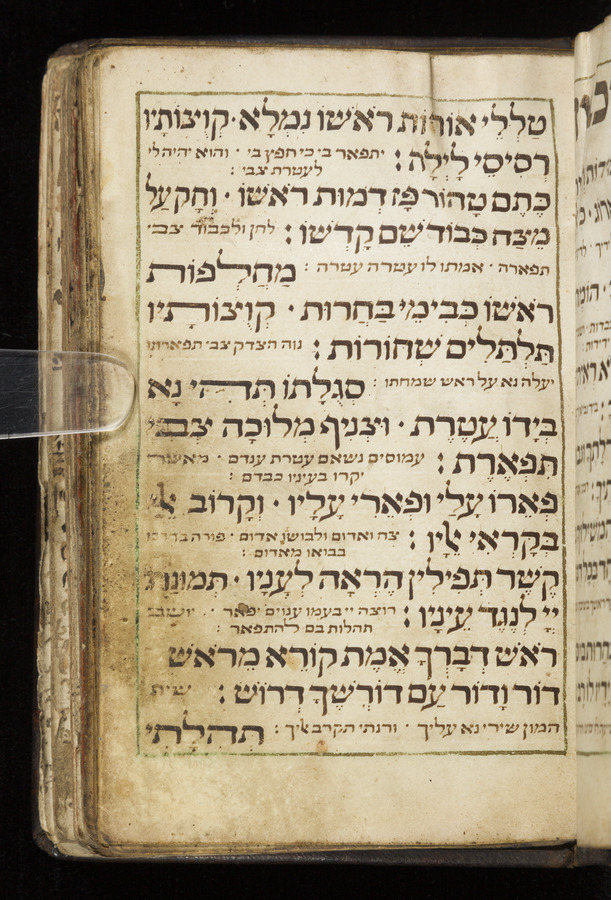 טַלְלֵי אוֹרוֹת רֹאשׁוֹ נִמְלָא · קְוֻצּוֹתָיו
רְסִיסֵי לָיְלָה : יתפאר בי כי חפץ בי · והוא יהיה לי
לעטרת צבי :
כֶּתֶם טָהוֹר פָּז דְמוּת רֹאשׁוֹ · וְחָק עַל
מֵצַח כְּבוֹד שֵׁם קָדְשׁוֹ : לחן ולכבוד צבי
תפארה · אמתו לו עטרה עטרה : מַחְלְפוֹת
רֹאשׁוֹ כְּבִימֵי בַחֲרוּת · קְוֻצּוֹתָיו
תַּלְתַּלִּים שְׁחוֹרוֹת : נוה הצדק צבי תפארתו
יעלה נא על ראש שמחתו : סְגֻלָּתוֹ תְּהִי נָא
בְיָדוֹ עֲטֶרֶת · וּצְנִיף מְלוּכָה צְבִי
תִּפְאֶרֶת : עמוסים נשאם עטרת ענדם · מאשר
יקרו בעיניו כבדם :
פְּאֵרוֹ עָלַי וּפְאֵרִי עָלָיו · וְקָרוֹב אֵלַי
בְּקָרְאִי אֵלָיו : צח ואדום ללבושו אדום · פורה בדרכו
בבואו מאדום :
קֶשֶׁר תְּפִילִּין הֶרְאָה לֶעָנָיו · תְּמוּנַת
יְיָ לְנֶגֶד עֵינָיו : רוצה בעמו ענוים יפאר · יושב
תהלות בם להתפאר :
רֹאשׁ דְּבָרְךָ אֱמֶת קוֹרֵא מֵרֹאשׁ
דּוֹר וָדוֹר עַם דּוֹרֶשְׁךָ דְּרוֹשׁ : שית
המון שירי נא עליך · ורנתי תקרב אליך : תְּהִלָּתִי